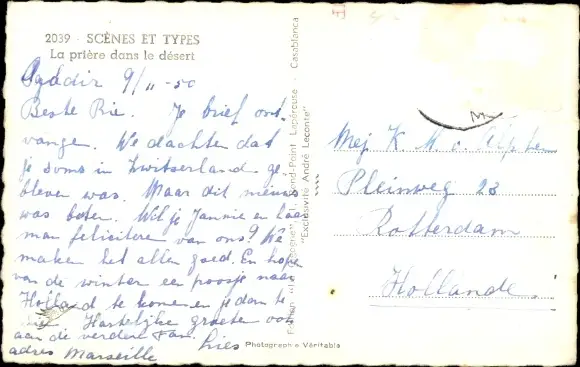 2039 - SCÈNES ET TYPES
La prière dans le désert
Agadir 9/11-50
Beste Rie. Je brief ont
vangen. We dachten dat
je soms in Zwitserland ge
bleven was. Maar dit nieuws
was beter. Wil je Jannie en
man feliciteren van ons? We
maken het allen goed. En hopen
van de winter een poosje naar
Holland te komen en je dan te
Hartelijke groeten ook
aan de verdere Fam.
Lies
adres Marseille
Photographie Véritable
Rond-Point Lapérouse - Casablanca
"Exclusivité André Leconte"
Mej K. M. v. Alphen
Pleinweg 23
Rotterdam
Hollande.